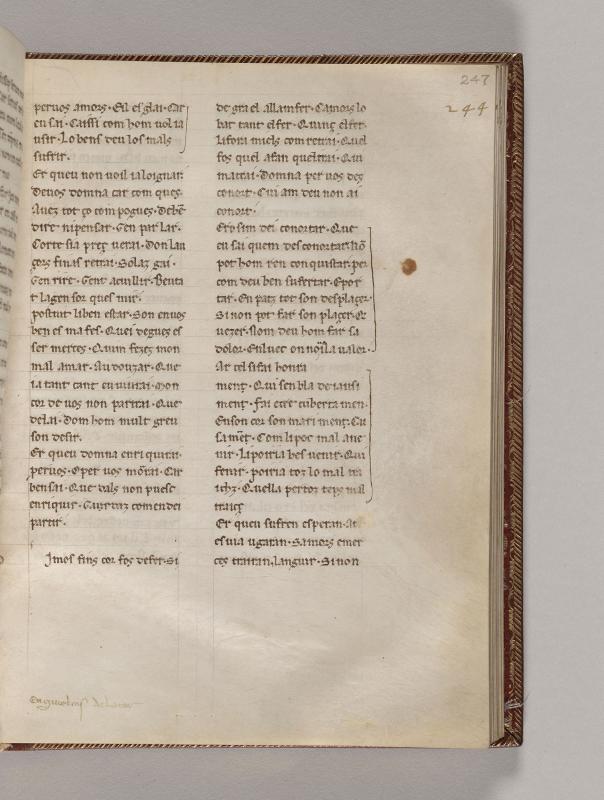 247
244
peruos amors. Eil esglai. Car
eu sai. Caissi com hom uol ia
usir. Lo bens deu los mals
sufrir.
Er queu non uoil ia loignar.
Deuos domna car com ques.
Auez tot ço com pogues. Debē
dire ni pensar. Gen parlar.
Corte sia prez uerai. Don lan
çors finas retrai. Solaz gai.
Gen rire. Gent acuillir. Beuta
t lagen sor ques mir.
postuir li ben estar. Son en uos
ben es ma fes. Quei degues es
ser merces. Quim fezes mon
mal amar. Au douzar. Que
ia tant cant eu uiurai. Mon
cor de uos non partrai. Que
delai. Dom hom mult greu
son desir.
Er queu domna enri quirai.
peruos. Oper uos morai. Car
ben sai. Que dals non puesc
enriquir. Caurtaz comendei
partir.
Imos fins cor fos de fer. Si
de gra el allamfer. Camors lo
bat tant el fer. Quinz el fer.
Li fora miels com retrai. Quel
fos quel afan quel trai. Qui
matrai. Domna per uos des
conort. Cui am deu non ai
conort.
Ero sim dei conortar. Que
eu sai quem desconortar. Hō
pot hom ren con quistar. per
com deu ben sufertar. E por
tar. En patz tot son desplaçer.
Si non pot far son plaçer. Er
uezer. Nom deu hom far sa
dolor. En luec on noilla ualor.
Ar cel si fai honra
ment. Qui sen bla de iausi
ment. Fai etēt cuberta men.
En son cor son marimenz. Eu
sa ment. Com li poc mal aue
nir. Li poiria bes uenir. Qui
fenir. poiria tot lo mal tra
itz. Quella per toz temps mal
traiz
Er queu sufren esperan. At
es uia ugaran. Samors e mer
ces trairan, languir. Si non